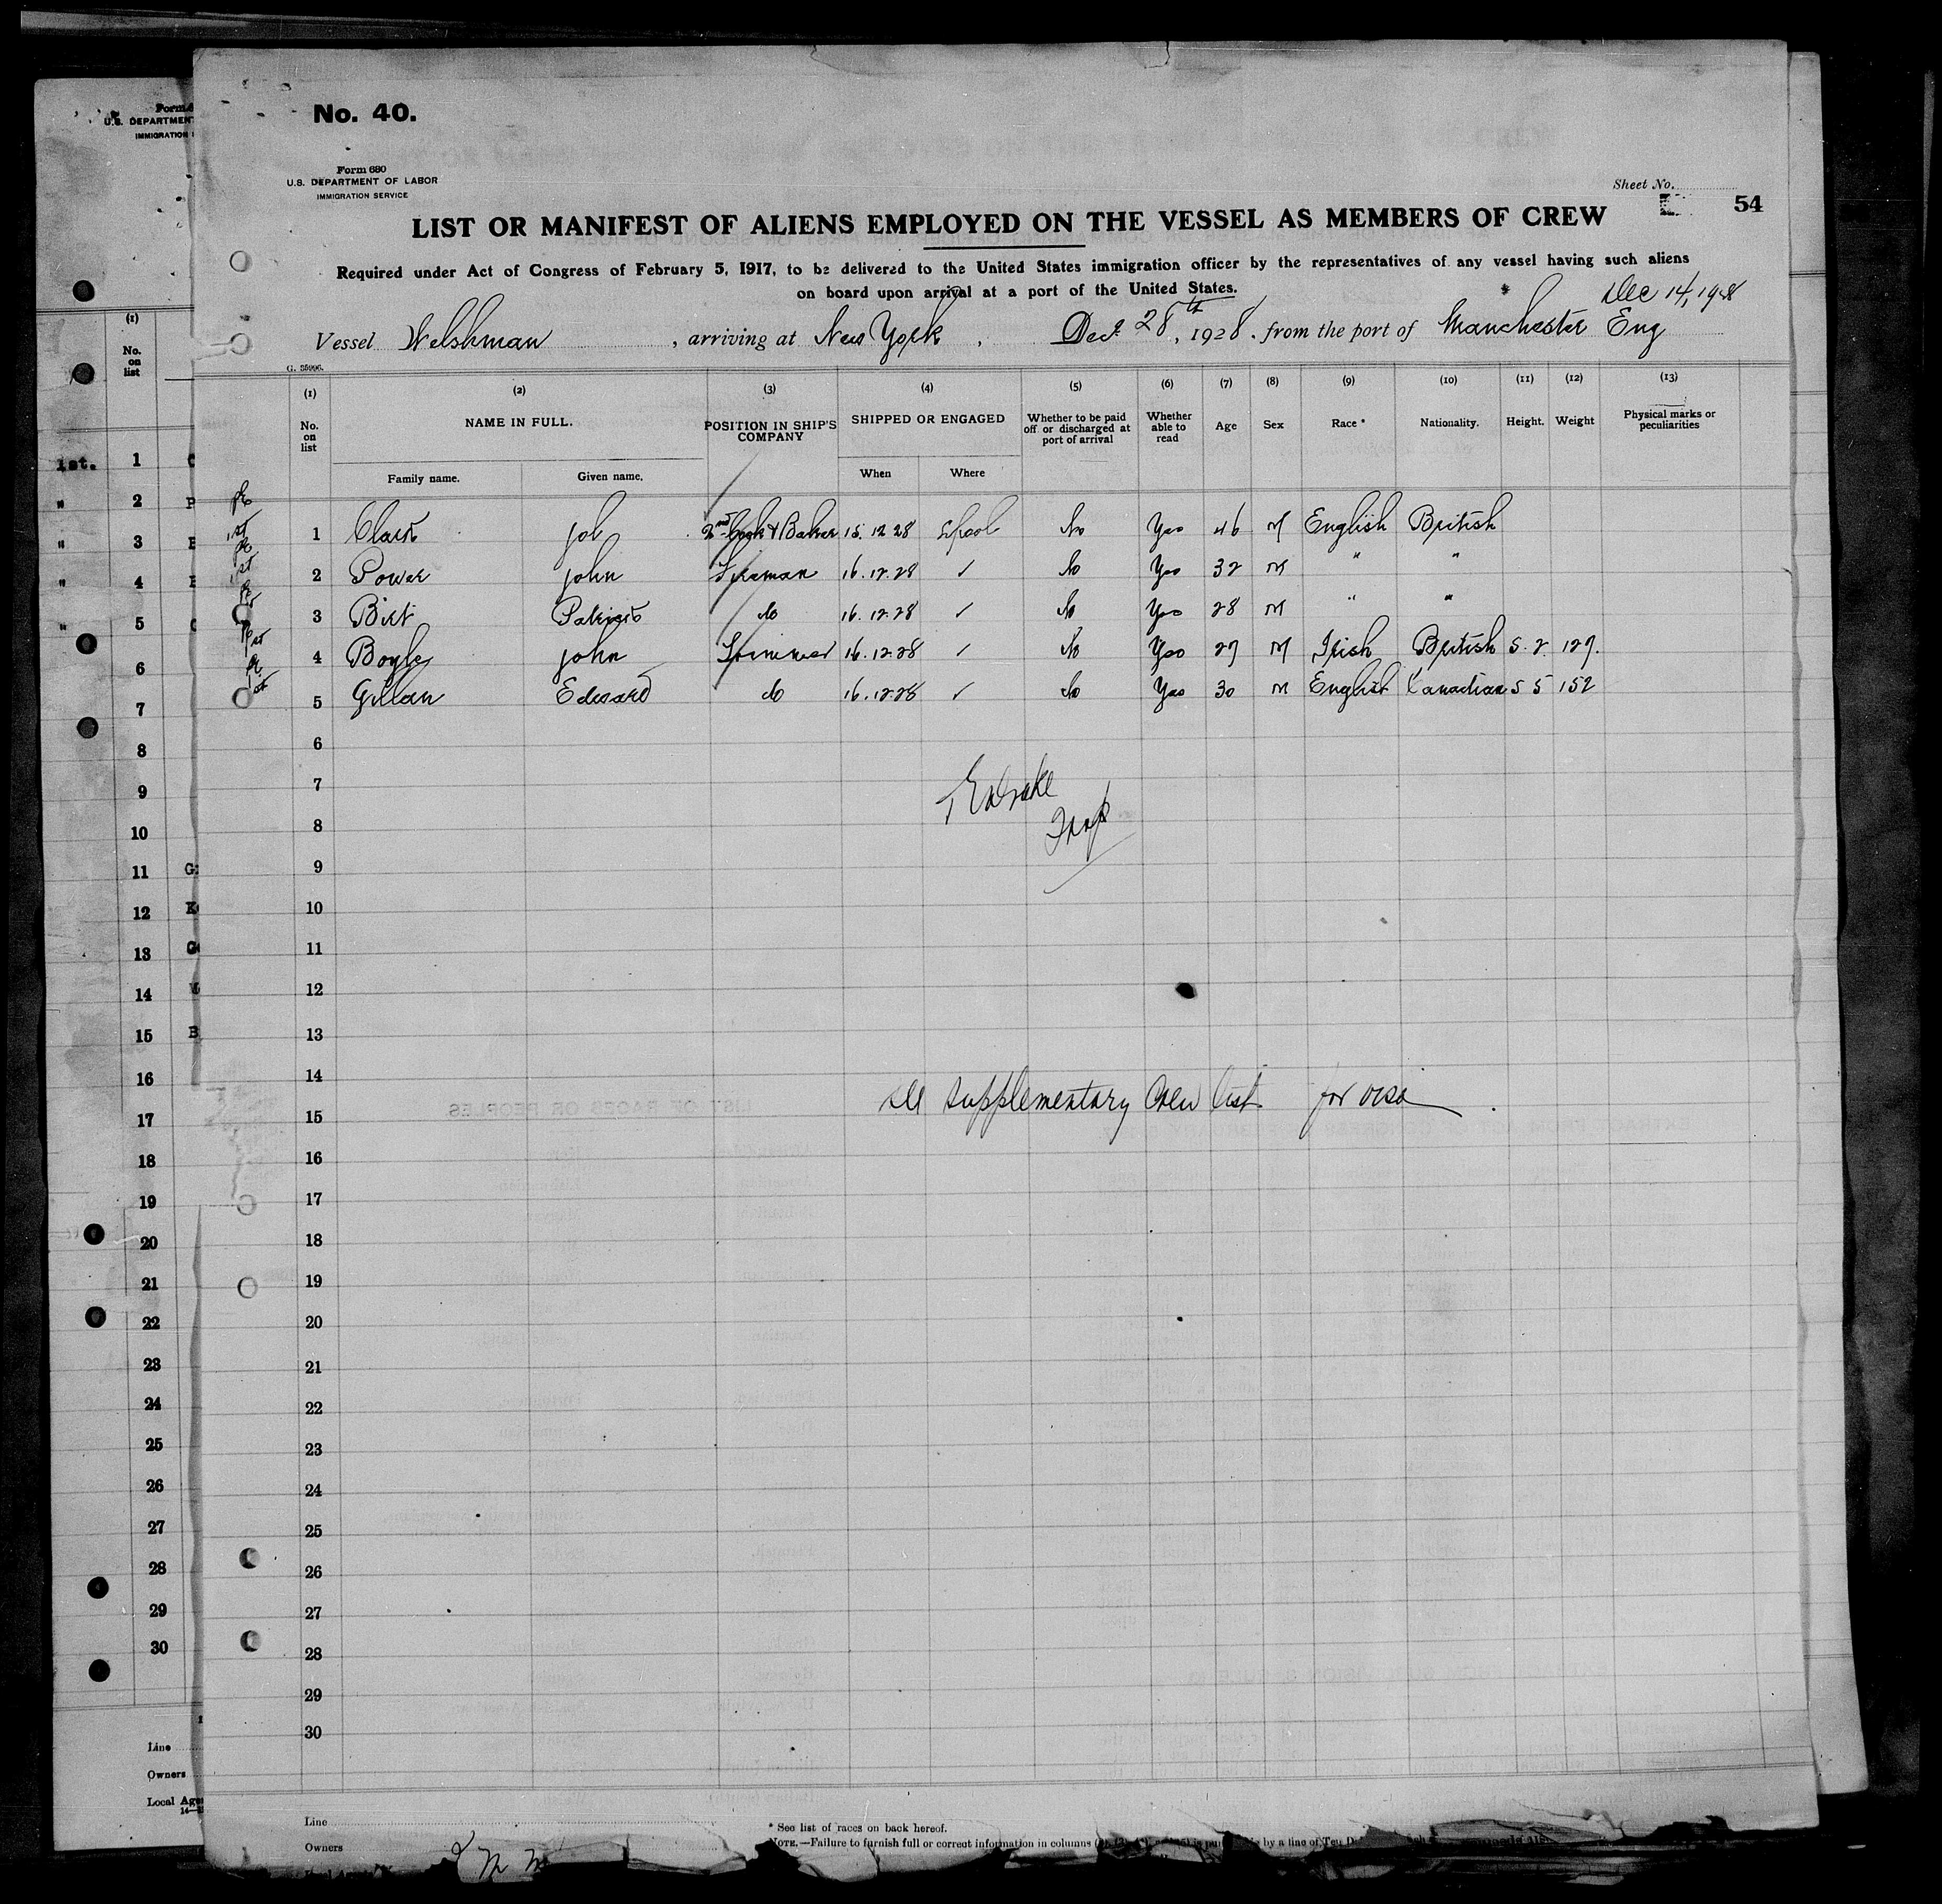 No. 40.
Form 680
U.S. DEPARTMENT OF LABOR
IMMIGRATION SERVICE
Sheet No.
54
LIST OR MANIFEST OF ALIENS EMPLOYED ON THE VESSEL AS MEMBERS OF CREW
Required under Act of Congress of February 5, 1917, to be delivered to the United States immigration officer by the representatives of any vessel having such aliens
on board upon arrival at a port of the United States.
Dec 14, 1928
Vessel Welshman, arriving at New York, Dec. 28th, 1928. from the port of Manchester Eng
G. 35096.
(1) (2) (3) (4) (5) (6) (7) (8) (9) (10) (11) (12) (13)
No. on list NAME IN FULL. POSITION IN SHIP'S COMPANY SHIPPED OR ENGAGED Whether to be paid off or discharged at port of arrival Whether able to read Age Sex Race * Nationality. Height. Weight Physical marks or peculiarities
Family name. Given name. When Where
1 Job 2nd Cook & Baker 15.12.28 Lpool No Yes 46 M English British
2 Power John Fireman 16.12.28 ✓ No Yes 32 M " "
3 Birt Patrick do 16.12.28 ✓ No Yes 28 M " "
4 Boyle John Trimmer 16.12.28 ✓ No Yes 27 M Irish British 5.2. 127.
5 Gillan Edward do 16.12.28 ✓ No Yes 30 M English Canadian 5 5 152
6
7
8
9
10
11
12
13
14
supplementary Crew list for visa
15
16
17
18
19
20
21
22
23
24
25
26
27
28
29
30
Line
Owners
* See list of races on back hereof.
NOTE.—Failure to furnish full or correct information in columns
Form
U.S. DEPARTMEN
IMMIGRATION
(1)
No. on list
1st. 1
" 2
" 3
" 4
" 5
6
7
8
9
10
11
12
13
14
15
16
17
18
19
20
21
22
23
24
25
26
27
28
29
30
Line
Owners
Local Age